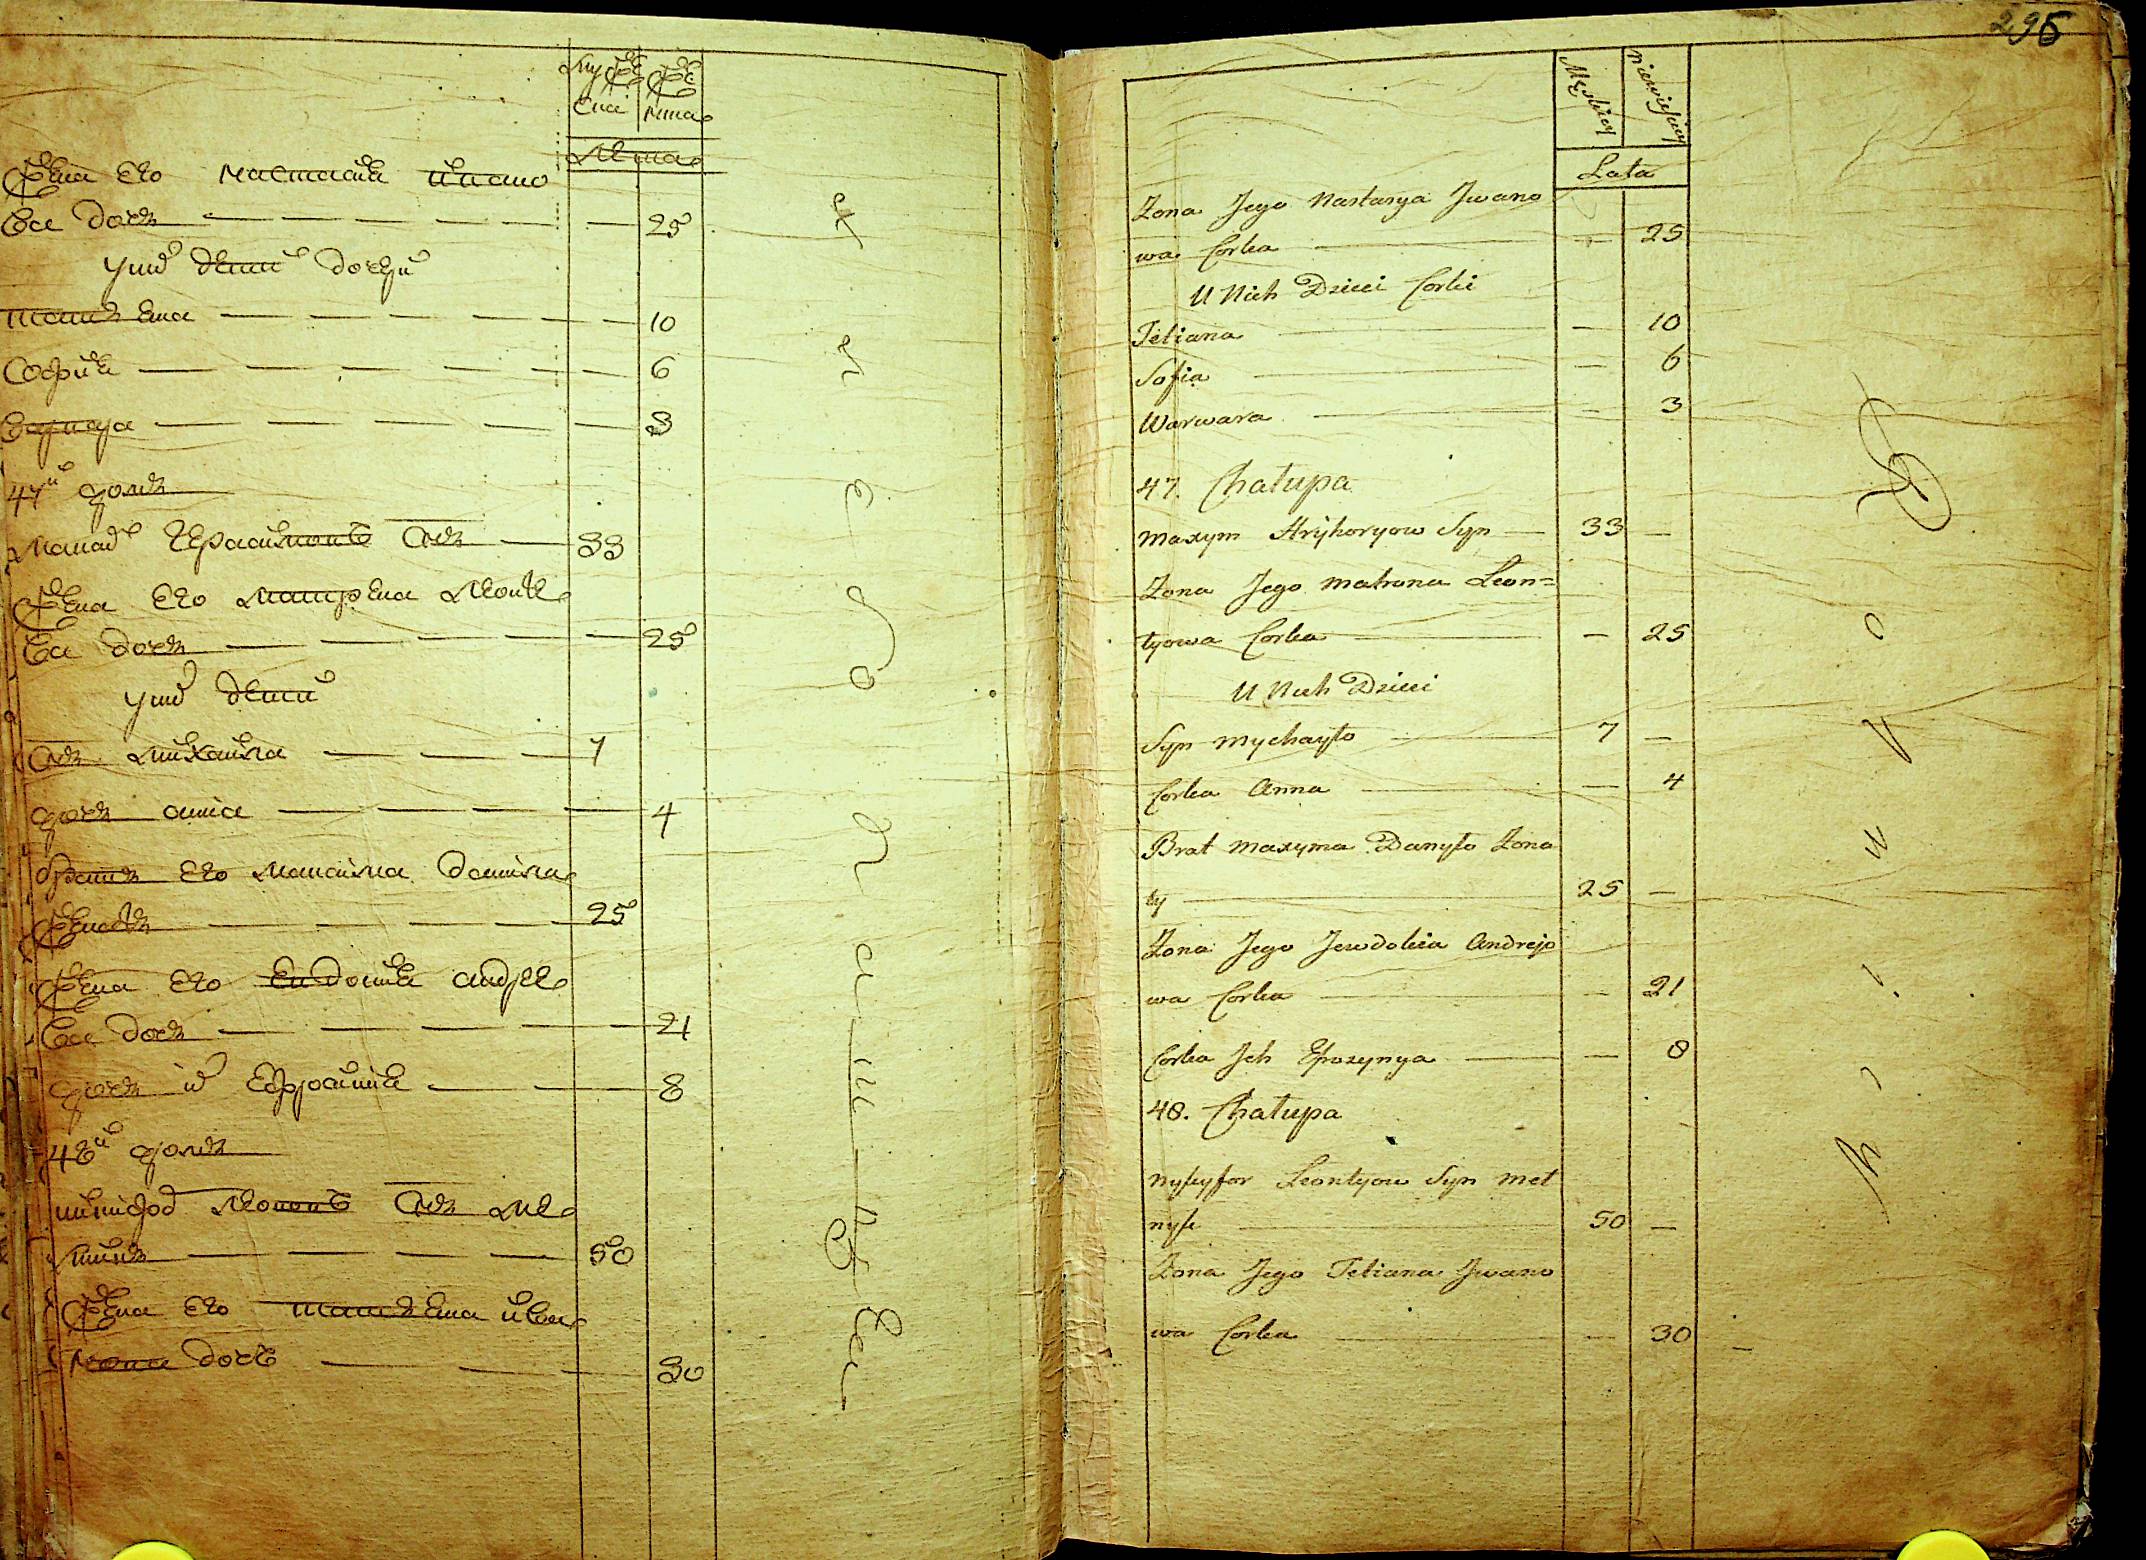 Лѣта
жена его настасия ивано
ва дочь — 25
у них дети дочери
татьяна — 10
София — 6
варвара — 3
47й домъ
сынъ — 33
жена его матрена Леонтье
ва дочь — 25
у них дети
сынъ михаила — 7
дочь анна — 4
братъ его данила
женатъ — 25
жена его евдокия андрее
ва дочь — 21
дочь их Ефросиния — 8
48й домъ
никифор сынъ ме
лникъ — 50
жена его татьяна ива
нова дочь — 30
295
Męskiey
Niewieskiey
Lata
Zona Jego Nastasya Jwano
wa Corka — 25
U Nich Dzieci Corki
Tetiana — 10
Sofia — 6
Warwara — 3
47. Chałupa
Maxym Hryhoryow Syn — 33 —
Zona Jego Matrona Leon=
tyowa Corka — 25
U Nich Dzieci
Syn Mychayło — 7 —
Corka Anna — 4
Brat Maxyma Danyło Zona
ty — 25 —
Zona Jego Jewdokia Andrejo
wa Corka — 21
Corka Jch Eproxynya — 8
48. Chałupa
Nykyfor Leontyow Syn Mel
nyk — 50 —
Zona Jego Tetiana Jwano
wa Corka — 30